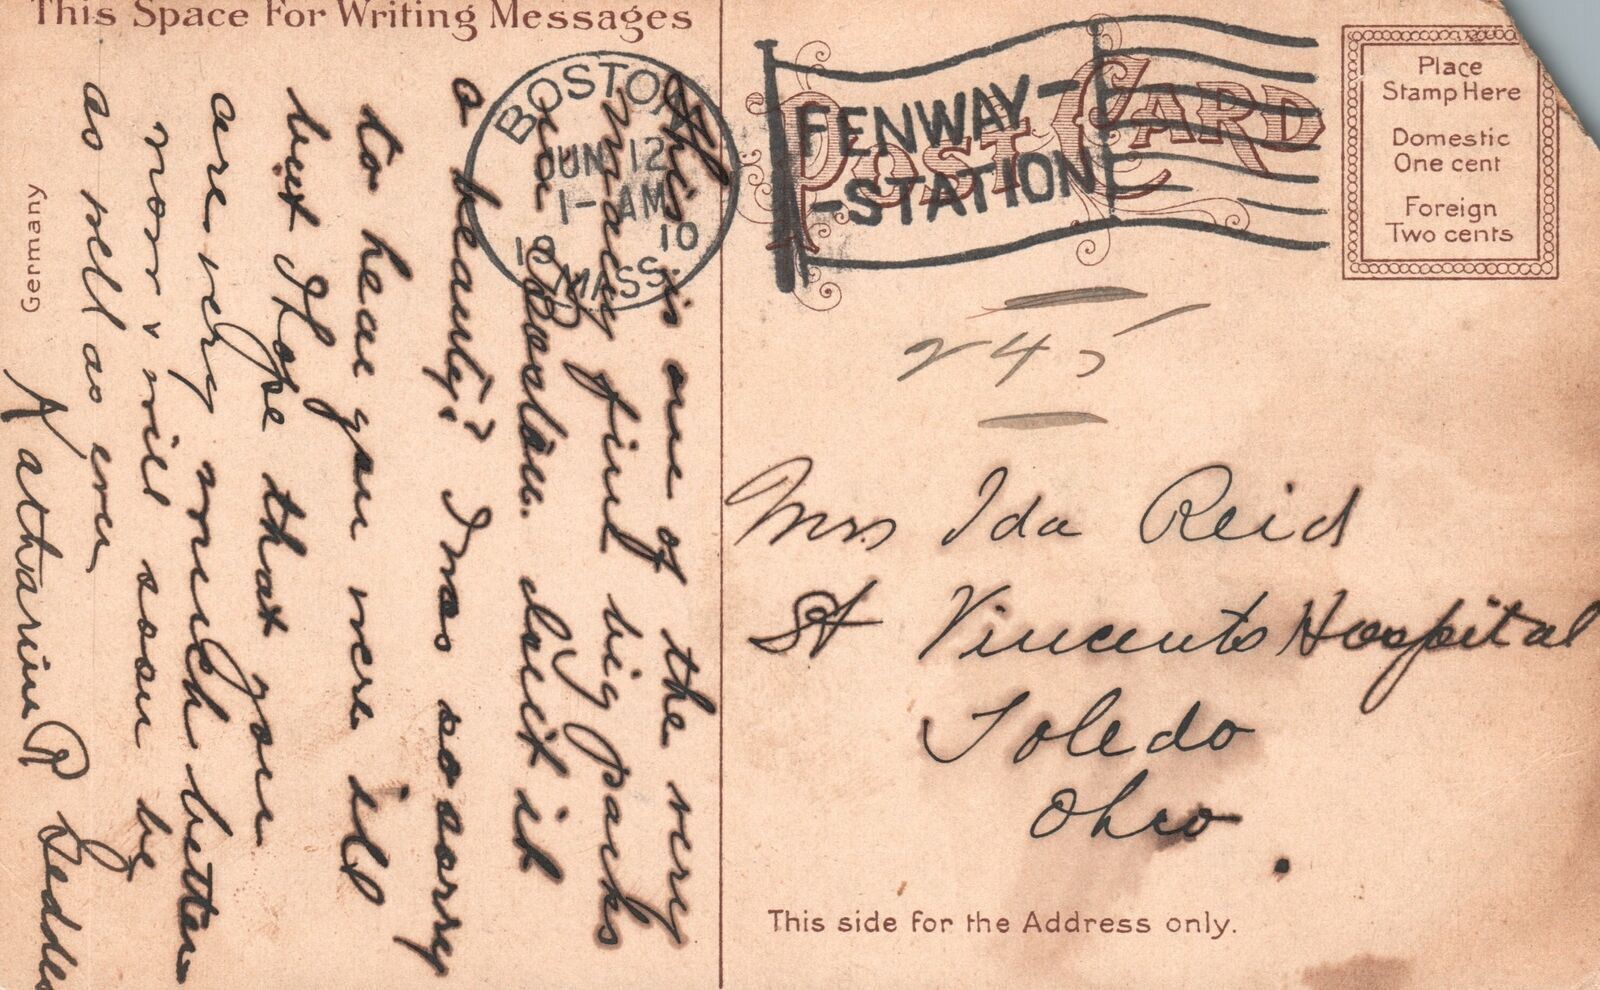 This Space For Writing Messages
This is one of the very
many fine big parks
in Boston. Isn't it
a beauty? I was so sorry
to hear you were ill
but I hope that you
are very much better
now & will soon be
as well as ever
Katharine R Geddes
Germany
BOSTON
JUN 12
1-AM
1910
MASS.
FENWAY-
-STATION
POST CARD
Place
Stamp Here
Domestic
One cent
Foreign
Two cents
245
Mrs Ida Reid
St Vincents Hospital
Toledo
Ohio.
This side for the Address only.